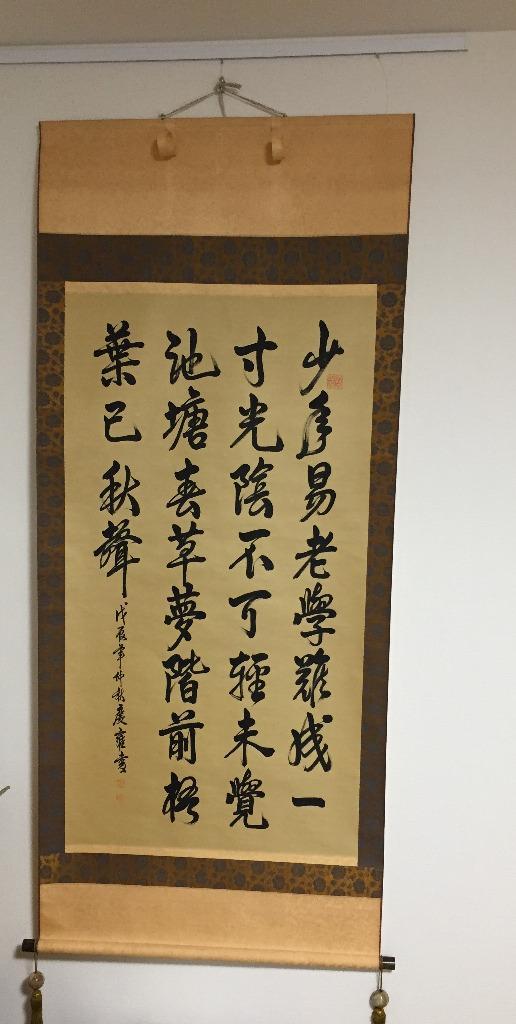 少年易老學難成一
寸光陰不可輕未覺
池塘春草夢階前梧
葉已秋聲
戊辰年仲秋慶雍書